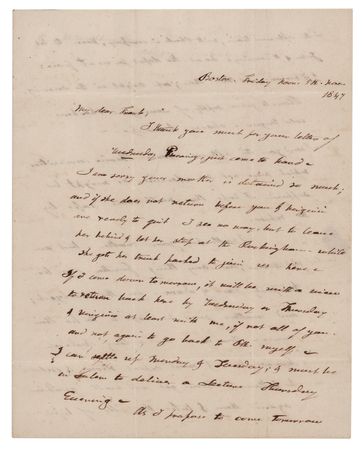 Boston. Friday noon. 5th. Nov.
1847
My dear Frank,
I thank you much for your letter of
Wednesday Evening, just come to hand
I am sorry your mother is detained so much;
and if she does not return before you & Virginia
are ready to quit I see no way, but to leave
her behind & let her stop at the Rockingham - while
she got her trunk packed to join us here
If I come down tomorrow, it will be with a view
to return back here by Wednesday or Thursday
& Virginia at least with me, if not all of you
and not, again to go back to myself
I can settle up Monday & Tuesday; & must be
in Salem to deliver a Lecture Thursday
Evening
As I propose to come tomorrow